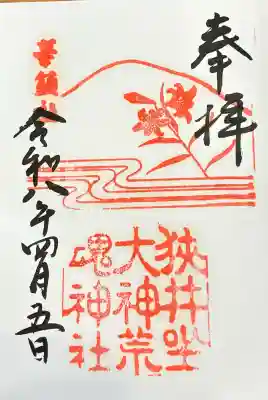 奉拝
狭井坐
大神荒
魂神社
華鎮
令和八年四月五日